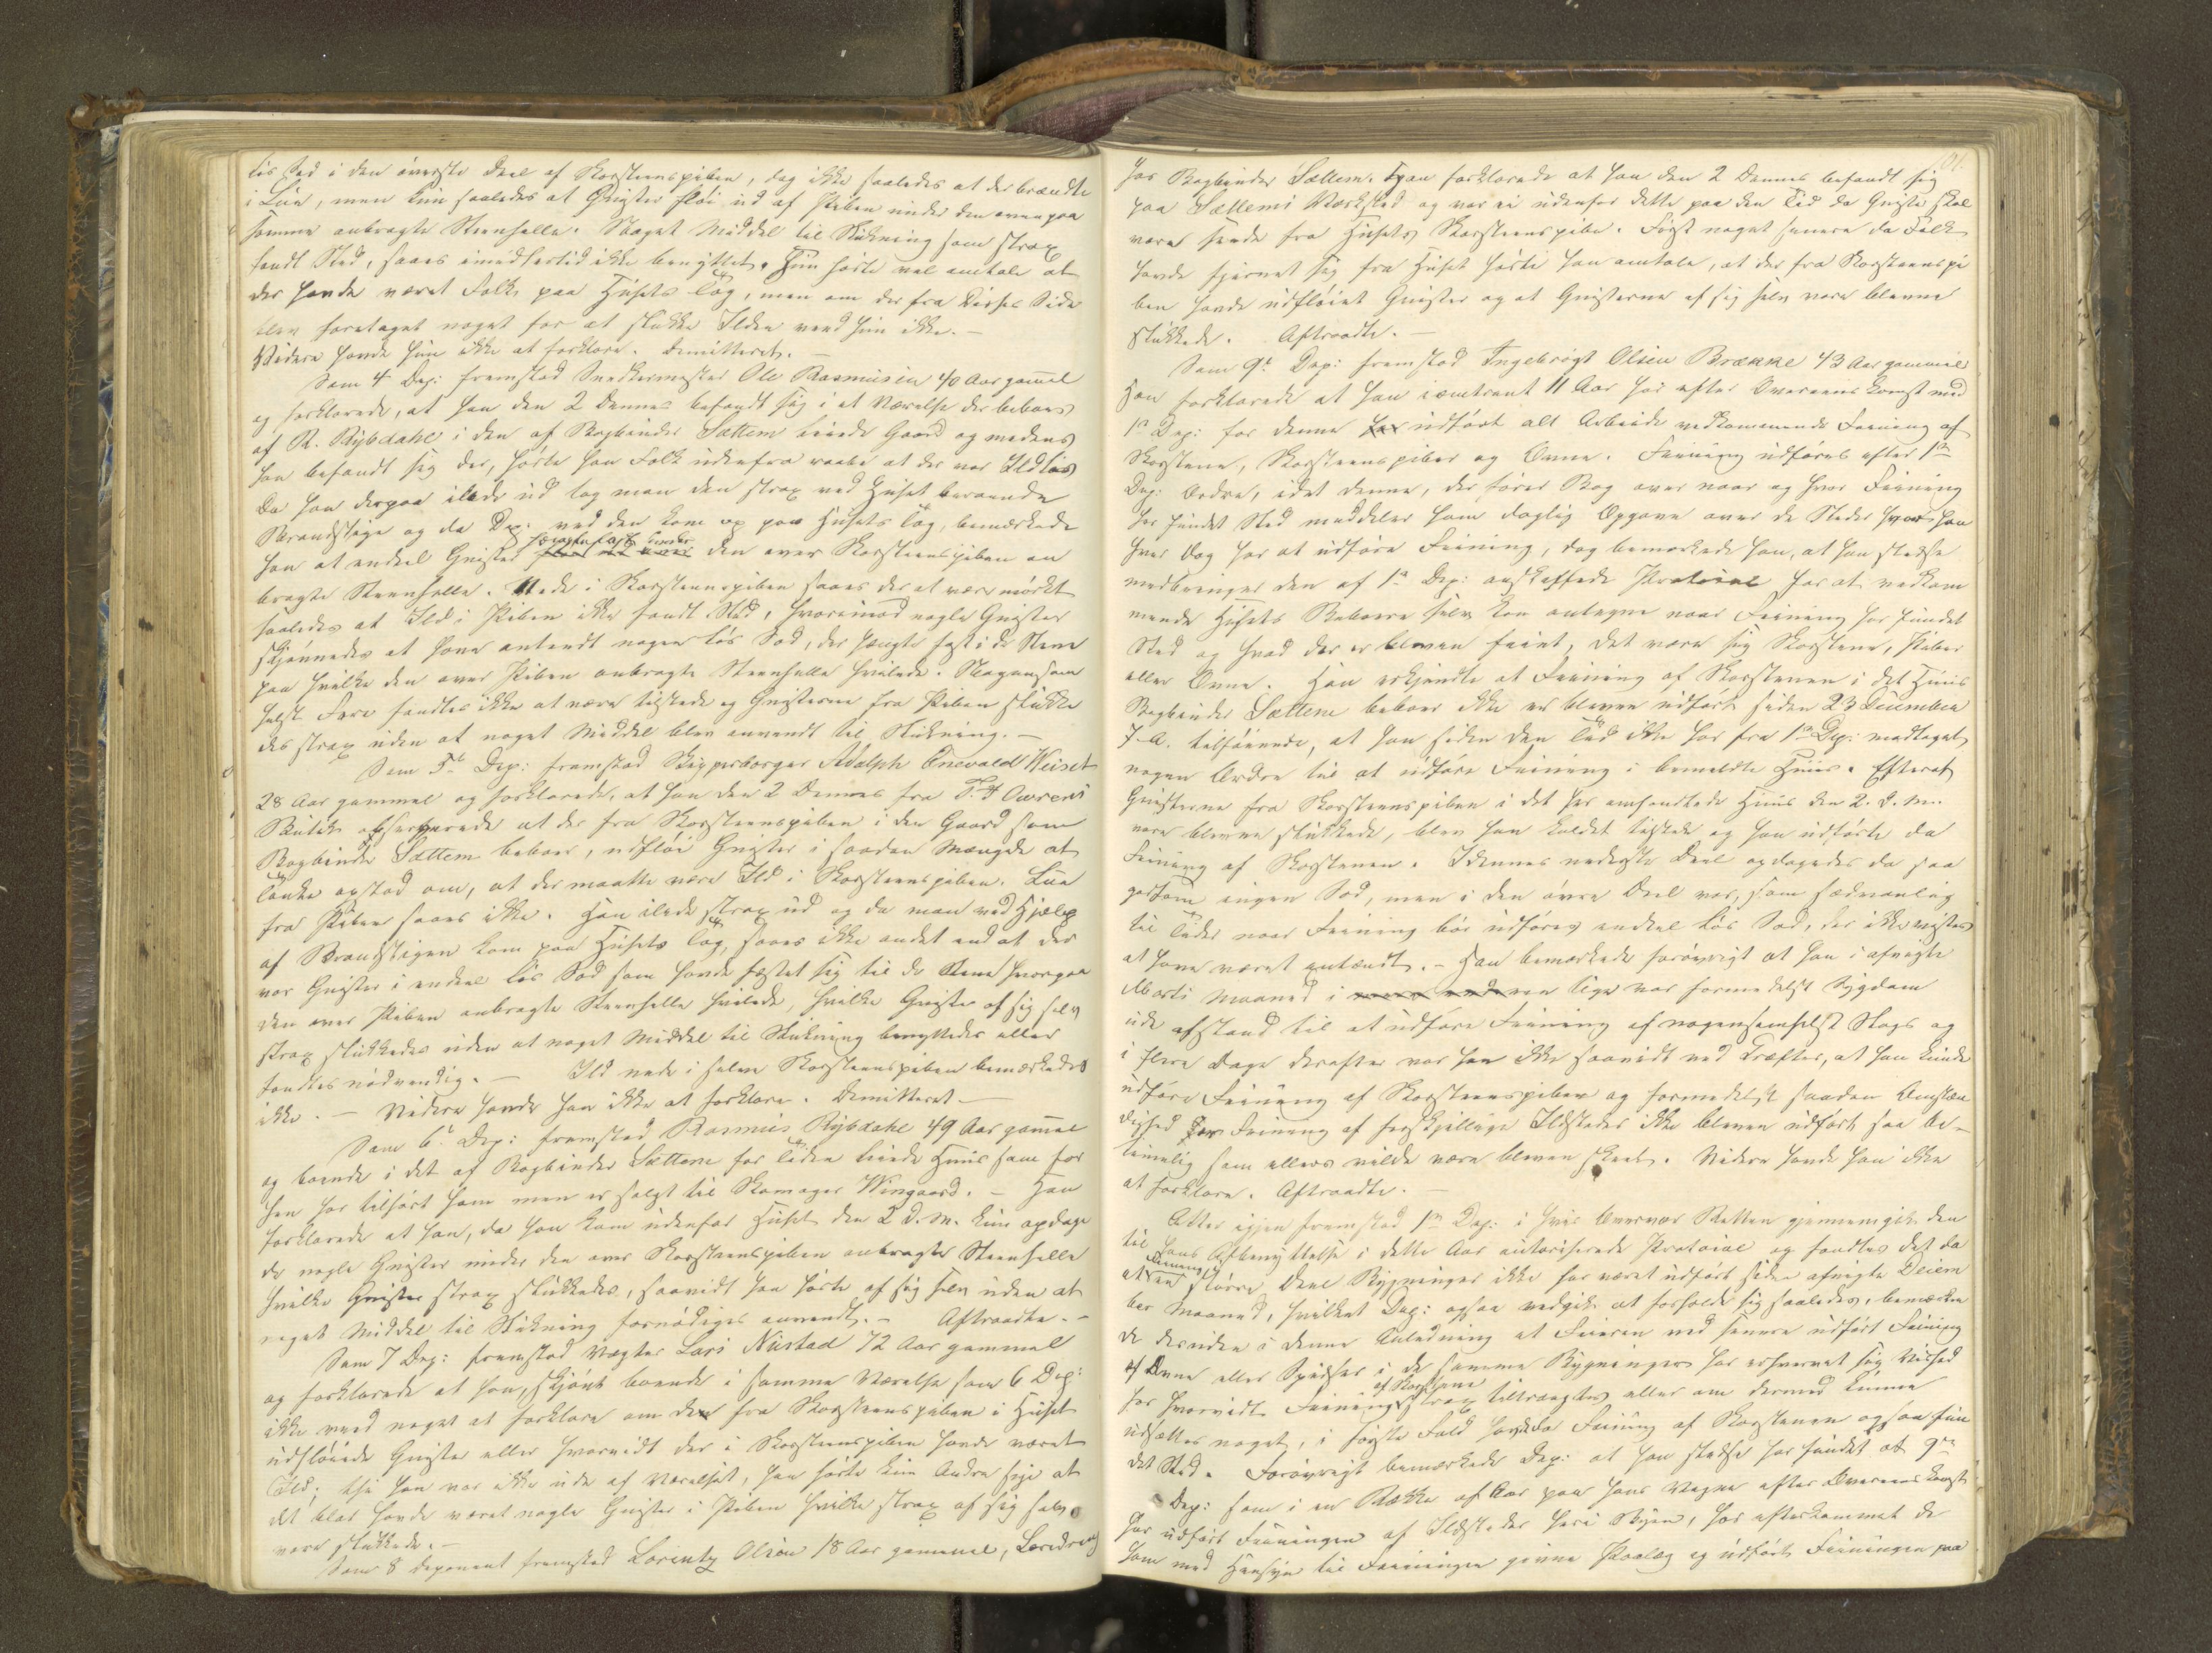 løs Sod i den øverste Deel af Skorsteenspiben, dog ikke saaledes at der brændte
i Lue, men kun saaledes at Gnister fløi ud af Piben under den ovenpaa
samme anbragte Steenhelle. Noget Middel til Slukning som strax
fandt Sted, saaes imidlertid ikke benyttet. Hun hørte vel omtale at
der havde været Folk paa Husets Tag, men om der fra Disses Side
blev foretaget noget for at slukke Ilden veed hun ikke. -
Videre havde hun ikke at forklare. Demitteret. -
Som 4 Dep: fremstod Snedkermester Ole Rasmusen 40 Aar gammel
og forklarede, at han den 2 Dennes befandt sig i et Værelse der beboes
af R. Rybdahl i den af Bogbinder Sættem eiende Gaard og medens
han befandt sig der, hørte han Folk udenfra raabe at der var Ildløs
Da han derpaa ilede ud tog man den strax ved Huset beroende
Brandstige og da Dep: ved den kom op paa Husets Tag, bemærkede
han at endeel Gnister hængte fast under den over Skorsteenspiben an
bragte Steenhelle. Nede i Skorsteenspiben saaes der at være mørkt
saaledes at Ild i Piben ikke fandt Sted, hvorimod nogle Gnister
skjønnedes at have antændt nogen løs Sod, der hængte fast i de Stene
paa hvilke den over Piben anbragte Steenhelle hvilede. Nogensom
helst Fare fandtes ikke at være tilstede og Gnisterne fra Piben slukke
des strax uden at noget Middel blev anvendt til Slukning. -
Som 5te Dep: fremstod Skipperborger Adolph Enevald Weiset
28 Aar gammel og forklarede, at han den 2 Dennes fra Owrens
Butik observerede at der fra Skorsteenspiben i den Gaard som
Bogbinder Sættem beboer, udfløi Gnister i saadan Mængde at
Tanke opstod om, at der maatte være Ild i Skorsteenspiben. Lue
fra Piben saaes ikke. Han ilede strax ud og da man ved Hjælp
af Brandstigen kom paa Husets Tag, saaes ikke andet end at der
var Gnister i endeel løs Sod som havde fæstet sig til de Stene hvorpaa
den over Piben anbragte Steenhelle hvilede, hvilke Gnister af sig selv
strax slukkedes uden at noget Middel til Slukning benyttedes eller
fandtes nødvendig. - Ild nede i selve Skorsteenspiben bemærkedes
ikke. - Videre havde han ikke at forklare. Demitteret. -
Som 6te Dep: fremstod Rasmus Rybdahl 49 Aar gammel
og boende i det af Bogbinder Sættem for Tiden eiende Huus som før
han har tilhørt ham men er solgt til Skomager Wingaard. - Han
forklarede at han, da han kom udenfor Huset den 2 d. M. kun opdage
de nogle Gnister under den over Skorsteenspiben anbragte Steenhelle
hvilke Gnister strax slukkedes, saavidt han hørte af sig selv uden at
noget Middel til Slukning fornødiges anvendt. - Aftraadte. -
Som 7 Dep: fremstod Vægter Lars Nustad 72 Aar gammel
og forklarede at han, skjønt boende i samme Værelse som 6 Dep:
ikke veed noget at forklare om de fra Skorsteenspiben i Huset
udfløiede Gnister eller hvorvidt der i Skorsteenspiben havde været
Ild; thi han var ikke ude af Værelset, han hørte kun Andre sige at
det blot havde været nogle Gnister i Piben hvilke strax af sig selv
vare slukkede. -
Som 8 Deponent fremstod Lorentz Olsen 18 Aar gammel, Læredreng
hos Bogbinder Sættem. Han forklarede at han den 2 Dennes befandt sig
paa Sættems Værksted og var ei udenfor dette paa den Tid da Gnister skal
være seede fra Husets Skorsteenspibe. Først noget senere da Folk
havde fjernet sig fra Huset hørte han omtale, at der fra Skorsteenspi
ben havde udfløiet Gnister og at Gnisterne af sig selv vare blevne
slukkede. Aftraadte. -
Som 9de Dep: fremstod Ingebrigt Olsen Brække 43 Aar gammel
Han forklarede at han i omtrent 11 Aar har efter Overeenskomst med
1ste Dep: for denne udført alt Arbeide vedkommende Feining af
Skorstene, Skorsteenspiber og Ovne. Feining udføres efter 1ste
Dep: Ordre, idet denne, der fører Bog over naar og hvor Feining
har fundet Sted meddeler ham daglig Opgave over de Steder hvor han
hver Dag har at udføre Feining, dog bemærkede han, at han stedse
medbringer den af 1ste Dep: anskaffede Protocol for at vedkom
mende Husets Beboere selv kan antegne naar Feining har fundet
Sted og hvad der er bleven feiet, det være sig Skorstene, Piber
eller Ovne. Han erkjendte at Feining af Skorstenen i det Huus
Bogbinder Sættem beboer ikke er bleven udført siden 23 December
f. A. tilføiende, at han siden den Tid ikke har fra 1ste Dep: modtaget
nogen Ordre til at udføre Feining i bemeldte Huus. Efterat
Gnisterne fra Skorsteenspiben i det her omhandlede Huus den 2. d. M.
vare blevne slukkede, blev han kaldet tilstede og han udførte da
Feining af Skorstenen. I dennes nederste Deel opdagedes da saa
godtsom ingen Sod, men i den øvre Deel var, som sædvanlig
til Tider naar Feining bør udføres endeel løs Sod, der ikke vistes
at have været antændt. - Han bemærkede forøvrigt at han i afvigte
Marts Maaned i een Uge var formedelst Sygdom
ude afstand til at udføre Feining af nogensomhelst Slags og
i flere Dage derefter var han ikke saavidt ved Kræfter, at han kunde
udføre Feining af Skorsteenspiber og formedelst saadan Omstæn
dighed Feining af forskjellige Ildsteder ikke bleven udført saa be-
timelig som ellers vilde være bleven skeet. Videre havde han ikke
at forklare. Aftraadte. -
Atter igjen fremstod 1ste Dep: i hvis Overvær Retten gjennemgik den
til hans Afbenyttelse i dette Aar autoriserede Protocol og fandtes det da
at Feining i en større Deel Bygninger ikke har været udført siden afvigte Decem
ber Maaned, hvilket Dep: ogsaa vedgik at forholde sig saaledes, bemærken
de desuden i denne Anledning at Feieren ved senere udført Feining
af Ovne eller Spidser i de samme Bygninger har erhvervet sig Vished
for hvorvidt Feining af Skorstene strax tiltrængtes eller om dermed kunne
udsættes noget, i første Fald havde da Feiing af Skorstenen ogsaa fun
det Sted. Forøvrigt bemærkede Dep: at han stedse har fundet at 9de
Dep: som i en Række af Aar paa hans Vegne efter Overeenskomst
har udført Feiningen af Ildsteder her i Byen, har efterkommet de
ham med Hensyn til Feiningen givne Paalæg og udført Feiningen paa